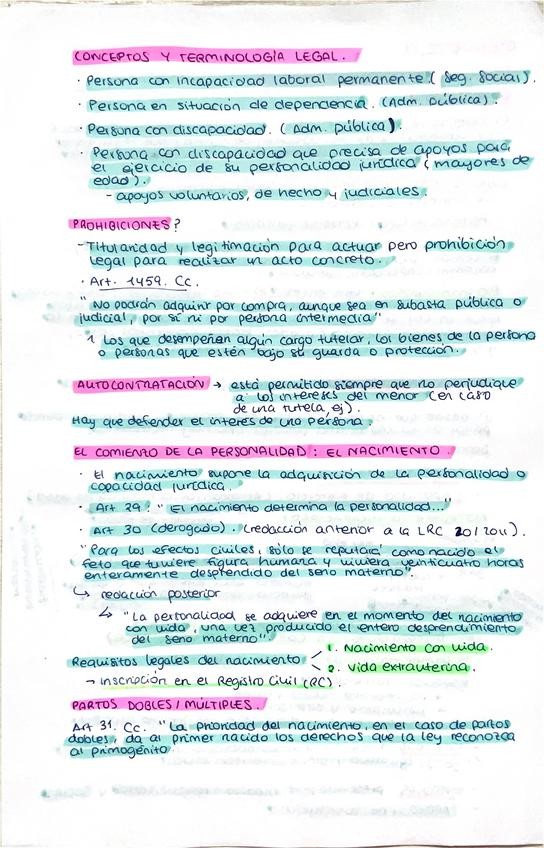 CONCEPTOS Y TERMINOLOGÍA LEGAL.
· Persona con incapacidad laboral permanente. (Seg. Social).
· Persona en situación de dependencia. (Adm. pública).
· Persona con discapacidad. (Adm. pública).
· Persona con discapacidad que precisa de apoyos para
el ejercicio de su personalidad jurídica (mayores de
edad).
- apoyos voluntarios, de hecho y judiciales.
PROHIBICIONES?
- Titularidad y legitimación para actuar pero prohibición
legal para realizar un acto concreto.
· Art. 1459. Cc.
"No podrán adquirir por compra, aunque sea en subasta pública o
judicial, por sí ni por persona intermedia"
1 Los que desempeñen algún cargo tutelar, los bienes de la persona
o personas que estén bajo su guarda o protección.
AUTOCONTRATACIÓN → está permitido siempre que no perjudique
a los intereses del menor (en caso
de una tutela, ej).
Hay que defender el interés de una persona.
EL COMIENZO DE LA PERSONALIDAD: EL NACIMIENTO.
· El nacimiento supone la adquisición de la personalidad o
capacidad jurídica
· Art 29: "El nacimiento determina la personalidad..."
· Art 30 (derogado). (redacción anterior a la LRC 20/2011).
"Para los efectos civiles, sólo se reputará como nacido el
feto que tuviere figura humana y viviera veinticuatro horas
enteramente desprendido del seno materno".
↳ redacción posterior
↳ "La personalidad se adquiere en el momento del nacimiento
con vida, una vez producido el entero desprendimiento
del seno materno"
Requisitos legales del nacimiento
1. Nacimiento con vida.
2. Vida extrauterina.
→ Inscripción en el Registro Civil (RC).
PARTOS DOBLES / MÚLTIPLES.
Art 31. Cc. "La prioridad del nacimiento, en el caso de partos
dobles, da al primer nacido los derechos que la ley reconozca
al primogénito